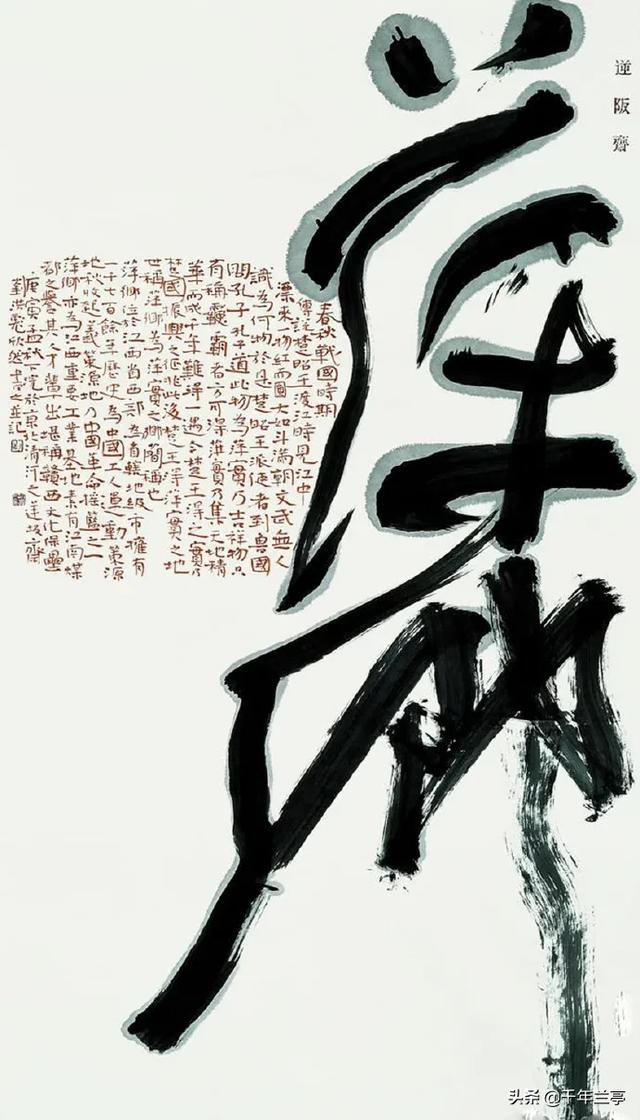 逆阪齋
春秋戰國時期
傳說楚昭王渡江時見江中
漂来一物紅而圓大如斗滿朝文武無人
識為何物於是楚昭王派使者到魯國
問孔子孔子道此物為萍實乃吉祥物只
有稱靈霸者方可得萍實乃集天地精
華而成千年難得一遇今楚王得之實乃
楚國振興之征兆此後楚王得萍實之地
世稱萍鄉為萍實之鄉簡稱也
萍鄉位於江西省西部為省轄地級市擁有
一千七百餘年歷史為中國工人運動策源
地秋收起義策源地乃中國革命摇籃之一
萍鄉亦為江西重要工業基地素有江南煤
都之譽其人才輩出堪稱贛西文化保壘
庚寅孟秋下浣於京北清河之逆阪齋
劉洪彪欣然書之並記
头条 @千年兰亭